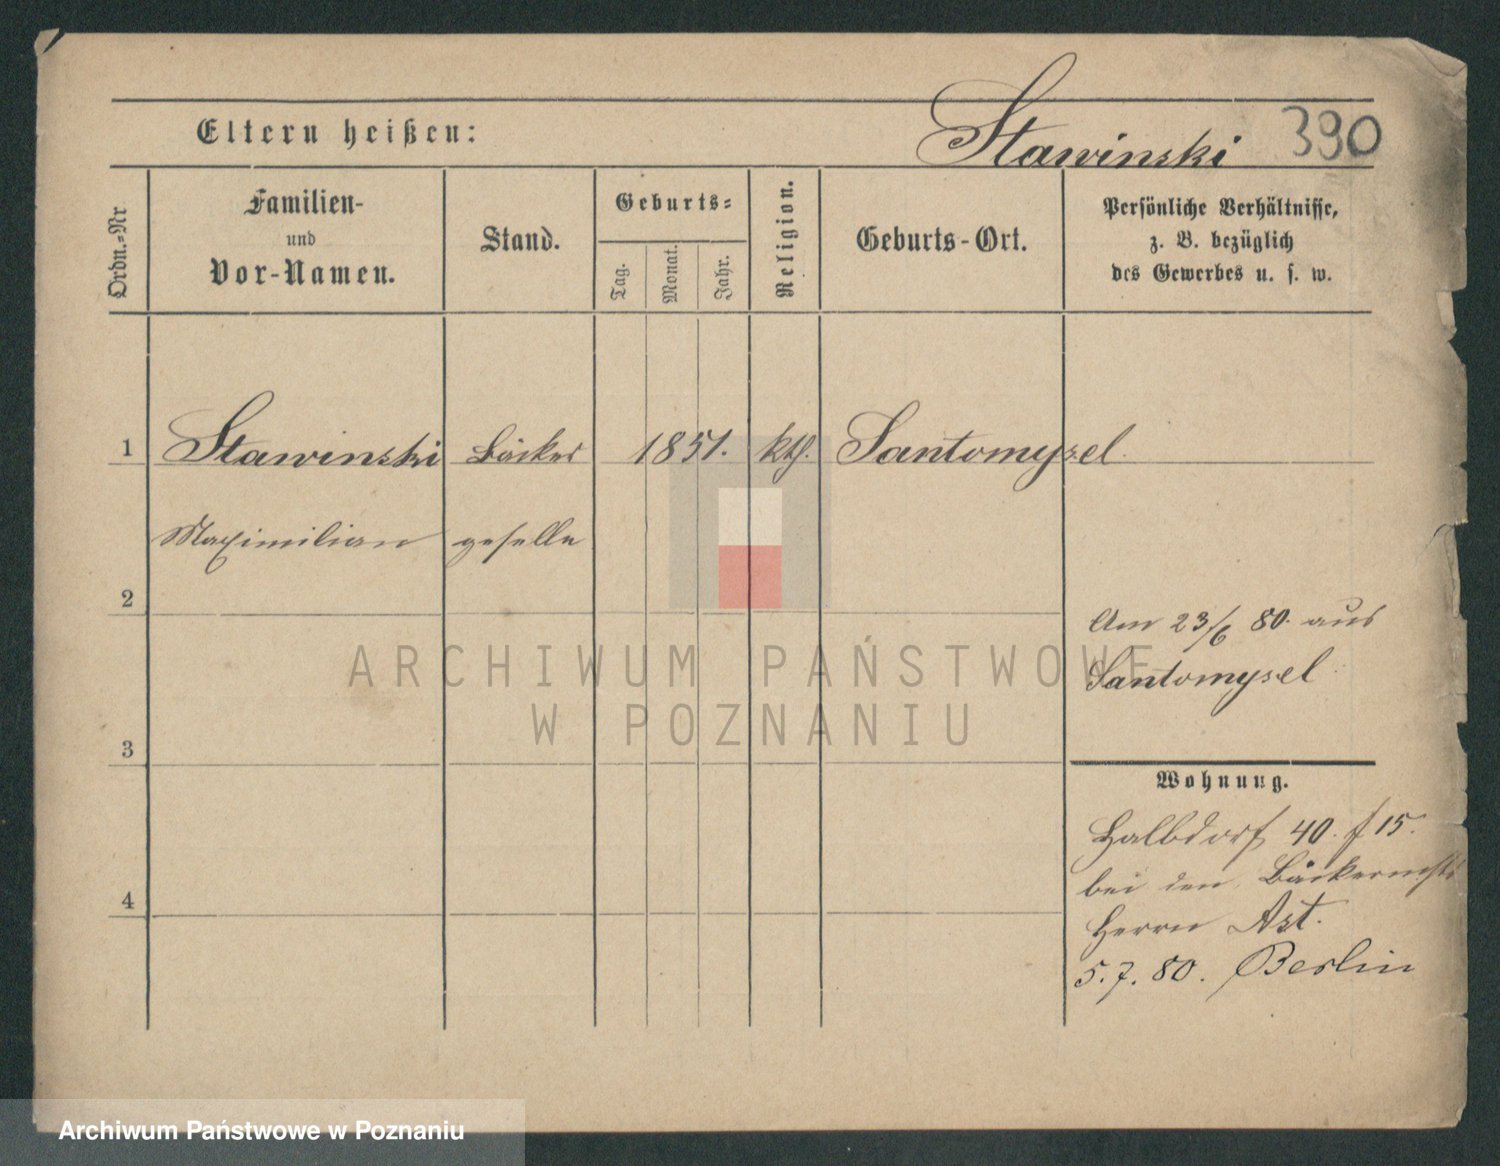 Stawinski 390
Eltern heißen:
Ordn.=Nr
Familien-
und
Vor-Namen.
Stand.
Geburts=
Tag.
Monat.
Jahr.
Religion.
Geburts-Ort.
Persönliche Verhältnisse,
z. B. bezüglich
des Gewerbes u. s. w.
1 Stawinski Bäcker 1851. kth. Santomysel
Maximilian geselle
2
Am 23/6 80. aus
Santomysel
3
Wohnung.
Halbdorf 40. f 15.
bei den Bäckermstr
4
Herrn Ast.
5.7.80. Berlin
ARCHIWUM PAŃSTWOWE
W POZNANIU
Archiwum Państwowe w Poznaniu